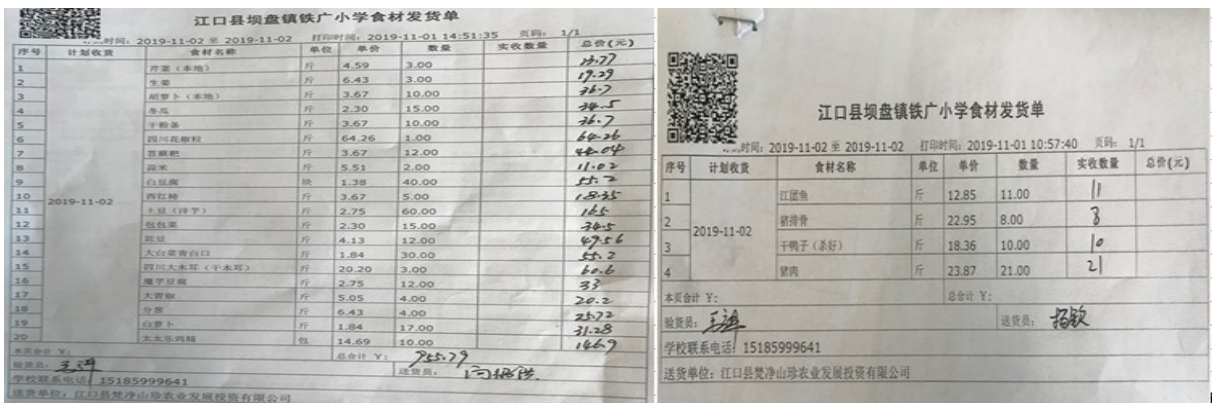 江口县坝盘镇铁广小学食材发货单
时间：2019-11-02 至 2019-11-02 打印时间：2019-11-01 14:51:35 页码：1/1
序号 计划收货 食材名称 单位 单价 数量 实收数量 总价(元)
2019-11-02
1 芹菜（本地） 斤 4.59 3.00 13.77
2 生姜 斤 6.43 3.00 19.29
3 胡萝卜（本地） 斤 3.67 10.00 36.7
4 冬瓜 斤 2.30 15.00 34.5
5 干粉条 斤 3.67 10.00 36.7
6 四川花椒粒 斤 64.26 1.00 64.26
7 苔蕨粑 斤 3.67 12.00 44.04
8 斤 5.51 2.00 11.02
9 白豆腐 块 1.38 40.00 55.2
10 西红柿 斤 3.67 5.00 18.35
11 土豆（洋芋） 斤 2.75 60.00 165
12 包包菜 斤 2.30 15.00 34.5
13 豇豆 斤 4.13 12.00 49.56
14 大白菜青白口 斤 1.84 30.00 55.2
15 四川大木耳（干木耳） 斤 20.20 3.00 60.6
16 魔芋豆腐 斤 2.75 12.00 33
17 大青椒 斤 5.05 4.00 20.2
18 分葱 斤 6.43 4.00 25.72
19 白萝卜 斤 1.84 17.00 31.28
20 太太乐鸡精 包 14.69 10.00 146.9
本页合计 ￥： 总合计 ￥： 955.79
验货员： 送货员：
学校联系电话：15185999641
送货单位：江口县梵净山珍农业发展投资有限公司
江口县坝盘镇铁广小学食材发货单
时间：2019-11-02 至 2019-11-02 打印时间：2019-11-01 10:57:40 页码：1/1
序号 计划收货 食材名称 单位 单价 数量 实收数量 总价(元)
2019-11-02
1 江团鱼 斤 12.85 11.00 11
2 猪排骨 斤 22.95 8.00 8
3 干鸭子（杀好） 斤 18.36 10.00 10
4 猪肉 斤 23.87 21.00 21
本页合计 ￥： 总合计 ￥：
验货员： 送货员：
学校联系电话：15185999641
送货单位：江口县梵净山珍农业发展投资有限公司